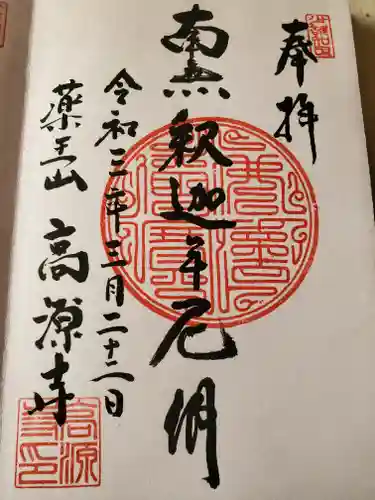 奉拝
南無釈迦牟尼仏
令和三年三月二十二日
薬王山 高源寺
高源
寺印